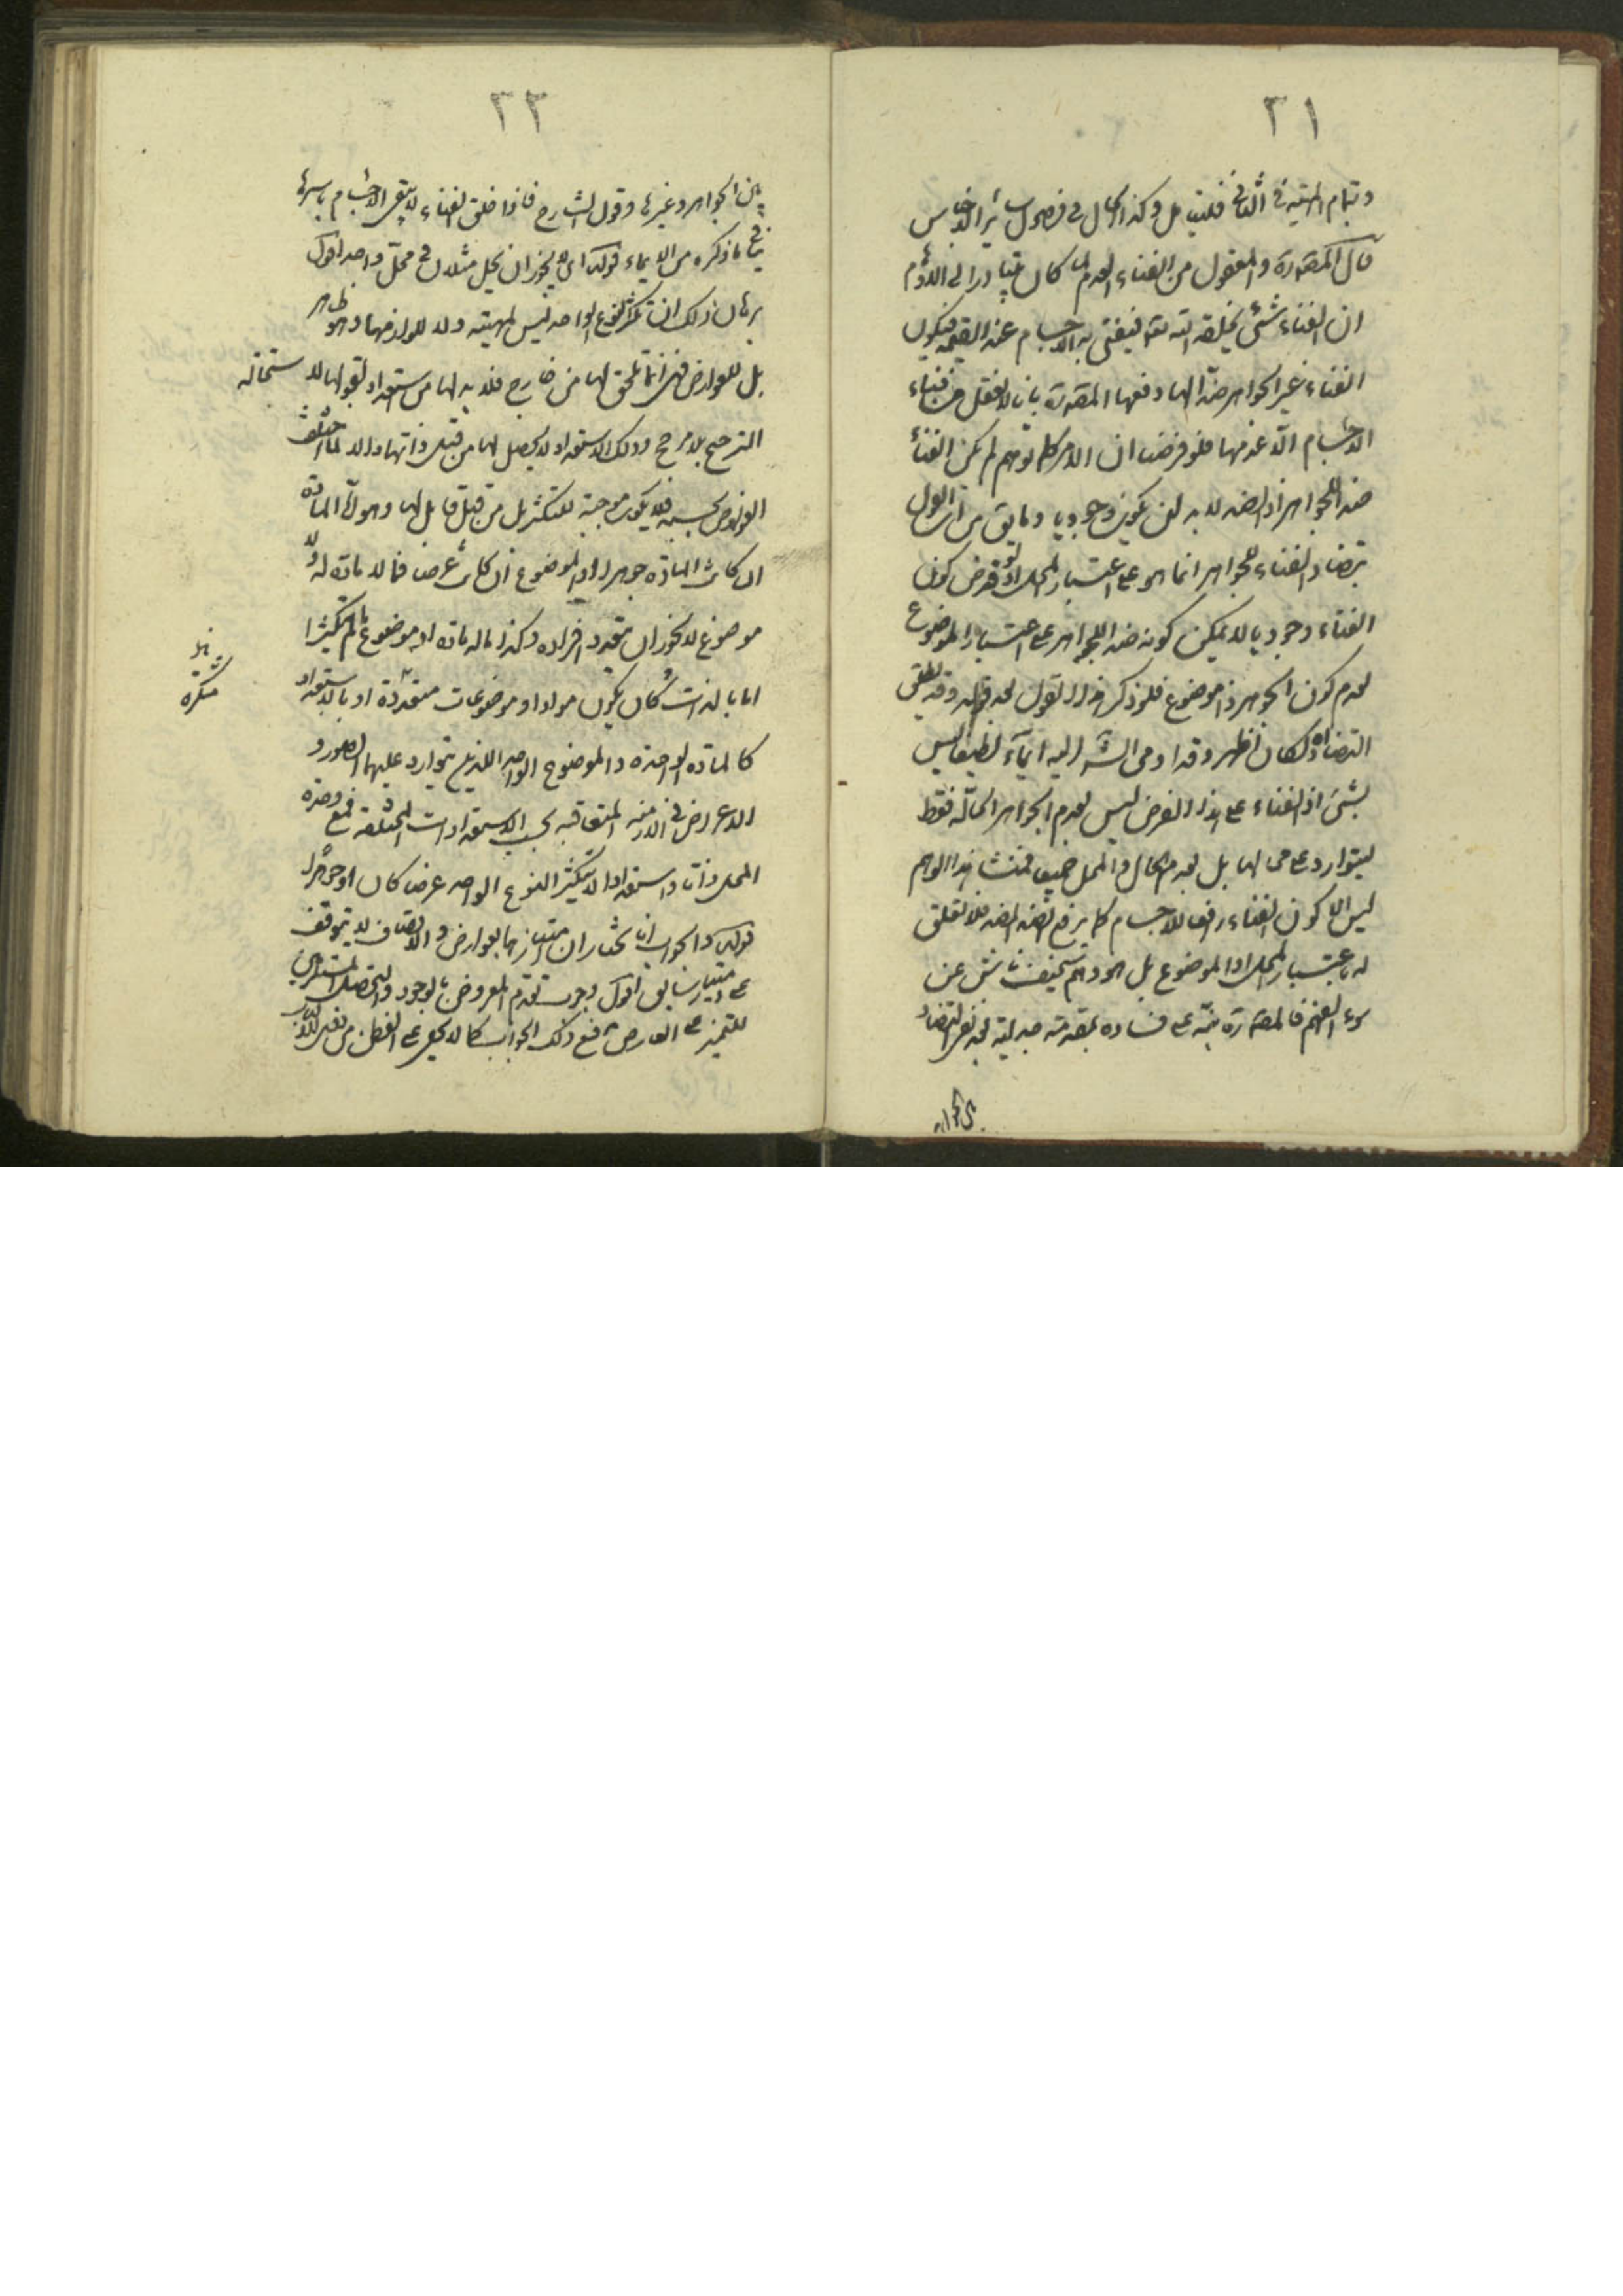 ٣١
وتمام المهية في الثاني فليتأمل وكذا الحال في فصول سائر الاجناس
قال المصدرة والمعقول من الفناء العدم لما كان متبادرا الى الاوهام
ان الفناء شئ يخلقه الله تعالى فيفنى به الاجسام عند القيمة فيكون
الفناء غير الجواهر ضدا لها دفعها المصدرة بانا لا نعقل من فناء
الاجسام الا عدمها فلو فرضنا ان الامر كما توهم لم يكن الفناء
ضد الجواهر اذ الضد لا بد ان يكون وجوديا وما يق من ان القول
بتضاد الفناء للجواهر انما هو على اعتبار المحل اذ لو فرض كون
الفناء وجوديا لا يمكن كونه ضدا للجواهر على اعتبار الموضوع
لعدم كون الجوهر ذا موضوع فلو ذكر هذا القول بعد قوله وقد يطلق
التضاد لكان اظهر وقد اومى الش اليه ايماء لطيفا ليس
بشئ اذ الفناء على هذا الفرض ليس لعدم الجواهر الحالة فقط
ليتوارد على محالها بل يعدم الحال والمحل جميعا فمنشأ هذا الوهم
ليس الا كون الفناء رافعا للاجسام كما يرفع الضد الضد فلا تعلق
له باعتبار المحل او الموضوع بل هو وهم سخيف ناش عن
سوء الفهم فالمصدرة نبه على فساده بمقدمة جدلية لنفى التضاد
بين الجواهر
٣٣
بين الجواهر وغيرها وقول الشارح فاذا خلق الفناء لا يبقى الاجسام باسرها
ينافى ما ذكره من الايماء قوله اى لا يجوز ان يحل مثلان في محل واحد اقول
برهان ذلك ان تكثر النوع الواحد ليس لمهيته ولا للوازمها وهو ظاهر
بل للعوارض فهى انما تلحق لها من خارج فلا بد لها من استعداد لقبولها لاستحالة
الترجيح بلا مرجح وذلك الاستعداد لا يحصل لها من قبل ذاتها والا لما اختلفت
العوارض بحسبه فلا يكون موجبة للتكثر بل من قبل قابل لها وهو اما المادة
ان كانت المادة جوهرا او الموضوع ان كانت عرضا فما لا مادة له ولا
موضوع لا يجوز ان يتعدد افراده وكذا ما له مادة او موضوع ما لم يتكثرا
اما بالذات كان يكون مواد او موضوعات متعددة او بالاستعداد
كالمادة الواحدة والموضوع الواحد اللذين يتوارد عليهما الصور و
الاعراض في الازمنة المتعاقبة بحسب الاستعدادات المختلفة فمع وحدة
المحل ذاتا واستعدادا لا يتكثر النوع الواحد عرضا كان او جوهرا
قوله والجواب انا نختار ان امتيازهما بعوارض والاتصاف لا يتوقف
على امتياز سابق اقول وجوب تقدم المعروض بالوجود والتحصل المستلزمين
للتميز على العارض يدفع ذلك الجواب كما لا يخفى على الفطن من نفى للاب
متكثرة